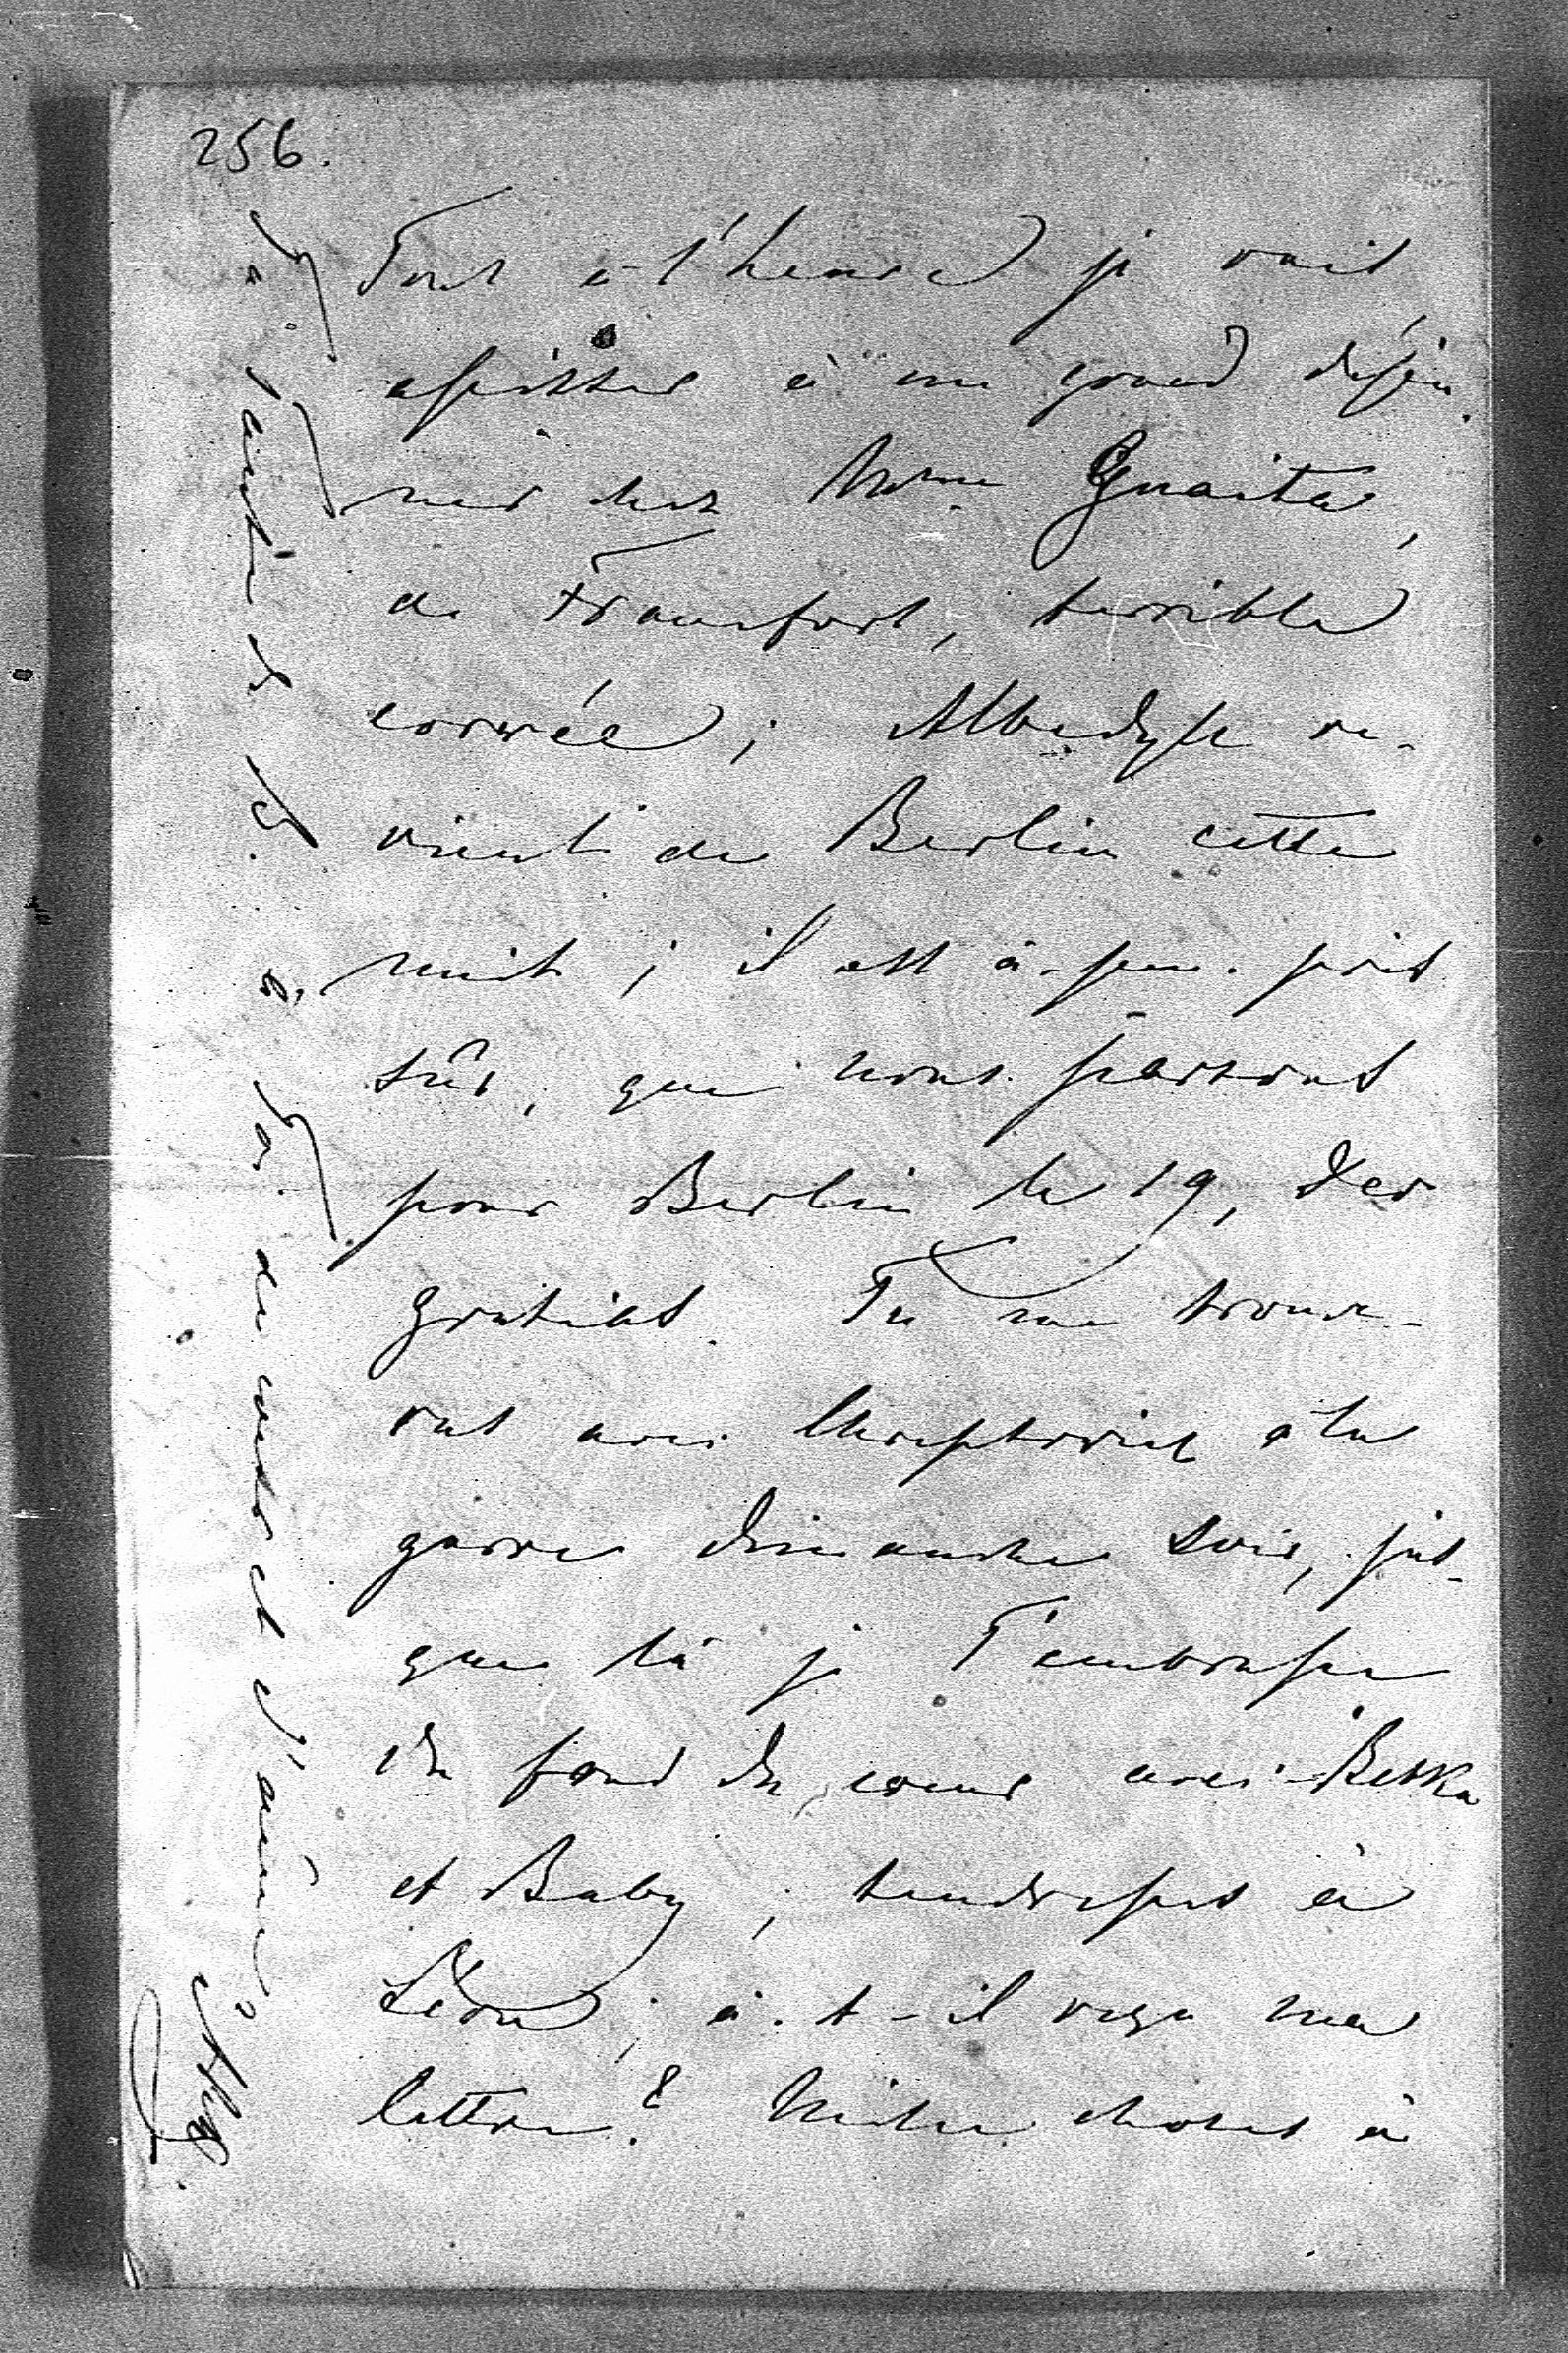 256.
Tout à l'heure je vais
assister à un grand déjeu-
ner chez Mme Guaita,
de Francfort, terrible
corvée; Albedyll re-
vient de Berlin cette
nuit; il est à-peu-près
sûr, que nous partons
pour Berlin le 19, Deo
gratias. Tu me trouve-
ras avec à la
garre dimanche soir, jus-
que là je T'embrasse
du fond du coeur avec Beska
et Baby; tendresses à
Léon; a-t-il reçu ma
lettre? Mille choses à
à tante et
à de coeur et d'âme